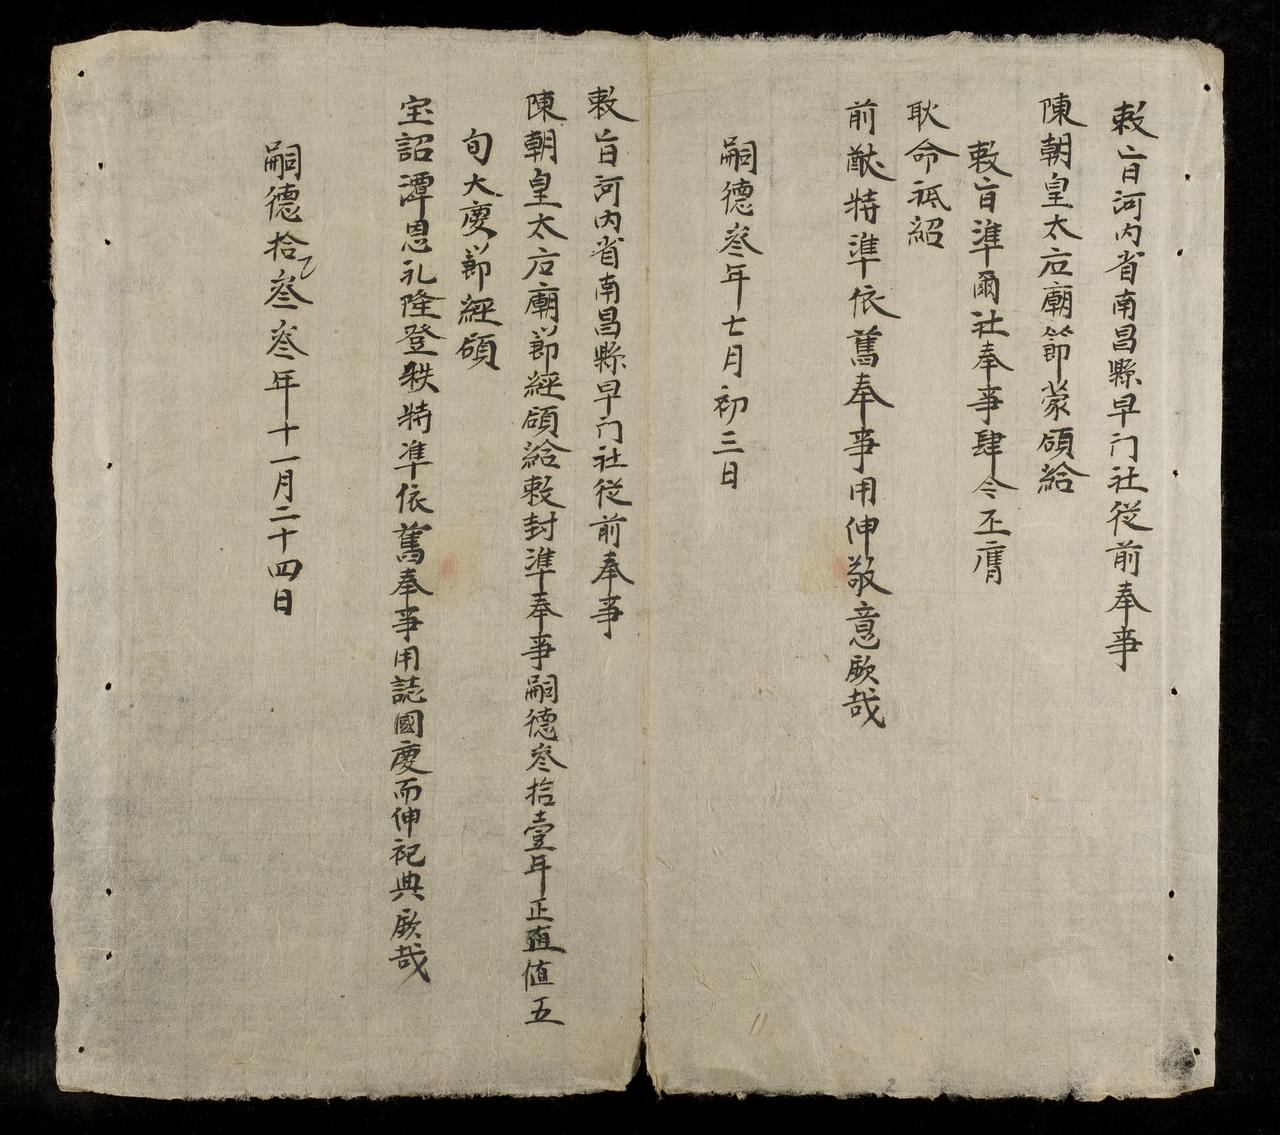 敕旨河内省南昌縣早门社從前奉事
陳朝皇太后廟節蒙頒給
敕旨準爾社奉事肆今丕膺
耿命祗紹
前猷特準依舊奉事用伸敬意厥哉
嗣德叄年七月初三日
敕旨河内省南昌縣早门社從前奉事
陳朝皇太后廟節經頒給敕封準奉事嗣德叄拾壹年正直值五
旬大慶節經頒
宝詔潭恩礼隆登秩特準依舊奉事用誌國慶而伸祀典厥哉
嗣德拾叄叄年十一月二十四日
2